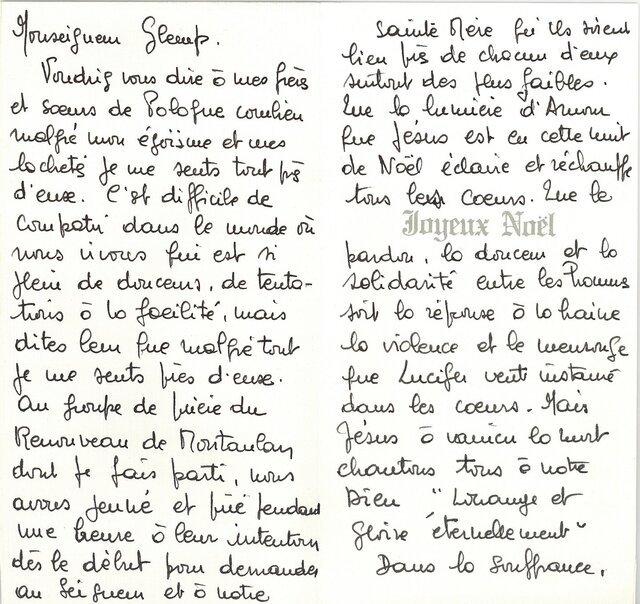 Monseigneur Glemp.
Voudriez vous dire à mes frères
et sœurs de Pologne combien
malgré mon égoïsme et mes
lachetés je me sents tout près
d'eux. C'est difficile de
compatir dans le monde où
nous vivons qui est si
plein de douceurs, de tenta-
tions à la facilité, mais
dites leur que malgré tout
je me sents près d'eux.
Au groupe de prière du
Renouveau de Montaulan
dont je fais parti, nous
avons jeuné et prié pendant
une heure à leur intention
dès le début pour demander
au Seigneur et à notre
Sainte Mère qu'ils soient
bien près de chacun d'eux
surtout des plus faibles.
Que la lumière d'Amour
que Jésus est en cette nuit
de Noël éclaire et réchauffe
tous les coeurs. Que le
Joyeux Noël
pardon, la douceur et la
solidarité entre les hommes
soit la réponse à la haine
la violence et le mensonge
que Lucifer veut instauré
dans les coeurs. Mais
Jésus à vaincu la mort
chantons tous à notre
Dieu "Louange et
Gloire éternellement"
Dans la souffrance,